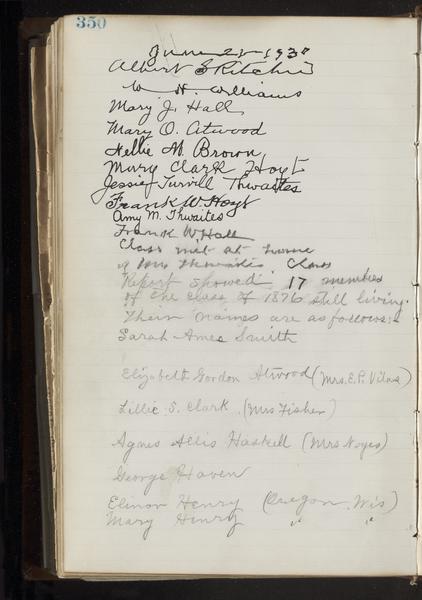 350
June 21 1930
Albert S Ritchie
W. H. Williams
Mary J. Hall
Mary O. Atwood
Nellie M. Brown
Mary Clark Hoyt
Jessie Turvill Thwaites
Frank W. Hoyt
Amy M. Thwaites
Frank W Hall
Class met at home
of Mrs Thwaites. Class
Report showed 17 members
of the class of 1876 still living.
Their names are as follows:-
Sarah Ames Smith
Elizabeth Gordon Atwood (Mrs. E. P. Vilas)
Lillie S. Clark (Mrs Fisher)
Agnes Allis Haskell (Mrs Noyes)
George Haven
Elinor Henry (Oregon, Wis)
Mary Henry " "